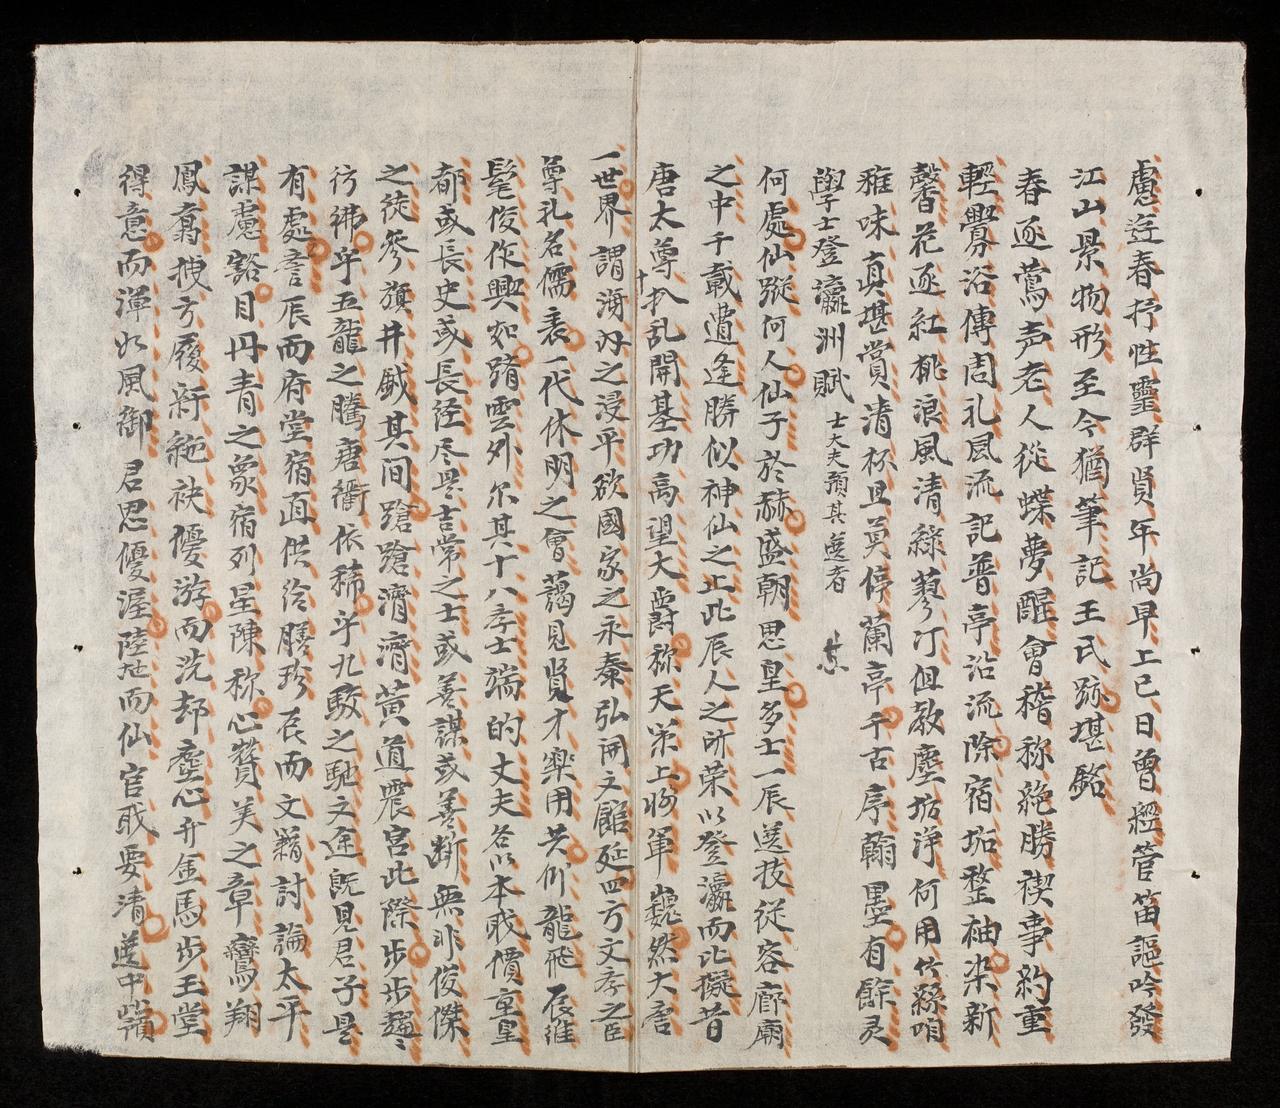 慮迓春抒性靈群賢年尚早上巳日曾經管笛謳吟發
江山景物形至今猶筆記王氏跡堪銘
春逐鶯声老人從蝶夢醒會稽称絶勝禊事約重
輕舉觴浴傳周礼風流記晉亭沿流除宿垢整袖染新
馨花逐紅桃浪風清綠蓼汀但教塵垢淨何用竹絲咱
雅味真堪賞清杯且莫停蘭亭千古序翰墨有餘灵
學士登瀛洲賦 士大夫預其選者
何處仙蹤何人仙子於赫盛朝思皇多士一辰选技從容廊廟
之中千載遭逢勝似神仙之止此辰人之所荣以登瀛而比擬昔
唐太尊十八乱開基功高望大爵称天策上將軍巍然大唐
一世界謂海内之浸平欲國家之永泰弘開文館延四方文孝之臣
尊礼名儒表一代休明之會藹見賢才樂用共例龍飛辰維
髦俊作興如躋雲外尔其十八孝士端的丈夫各以本戝價重皇
都或長史或長泾尽是吉常之士或善謀或善斷無非俊傑
之徒参旗井鉞其间蹌蹌濟濟黄道震宫此際步步趨〻
彷彿乎五龍之騰唐衢依稀乎九駿之馳文途既見君子是
有處訔辰而府堂宿直供给膳珍辰而文籍討論太平
謀慮豁目丹青之象宿列星陳称心賛美之章鸞翔
鳳翥披方履紆絁袂優游而洗却塵心升金馬步玉堂
得意而渾如風御君恩優渥陸地而仙官戝要清选中嵿